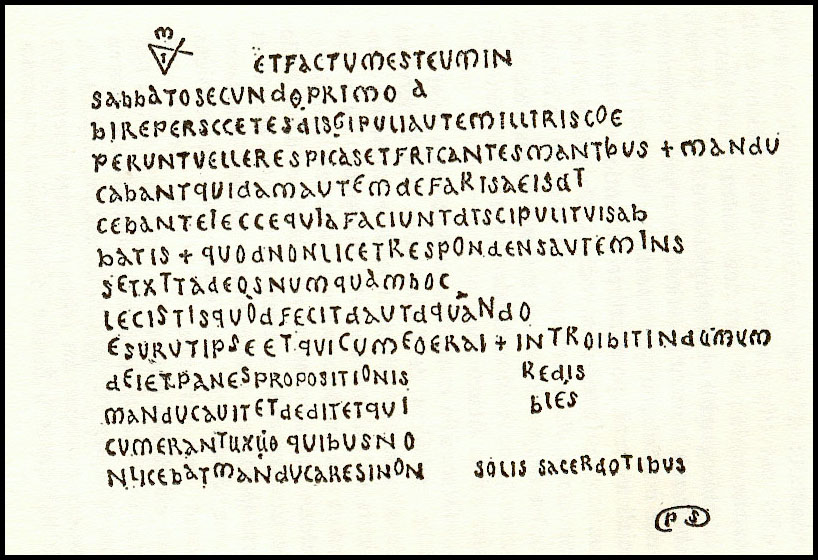 M
ETFACTUMESTEUMIN
SABBATOSECUNDOPRIMO A
BIREPERSCCETESDISGIPULIAUTEMILLTRISCOE
PERUNTUELLERESPICASETFRICANTESMANTBUS + MANDU
CABANTQUIDAMAUTEMDEFARISAEISDT
CEBANTEIECCEQUIAFACIUNTDTSCIPULITVISAB
BATIS + QUODNONLICETRESPONDENSAVTEMINS
SETXTTADEOSNUMQUAMBOC
LECISTISQUODFECITDAUTDQUANDO
ESURUTIPSEETQVICUMEOERAI + INTROIBITINDUMUM
DEIETPANESPROPOSITIONIS REDIS
MANDUCAUITETDEDITETQUI BLES
CVMERANTUXUO QUIBUSNO
NLICEBATMANDUCARESINON SOLIS SACERDOTIBUS
PS